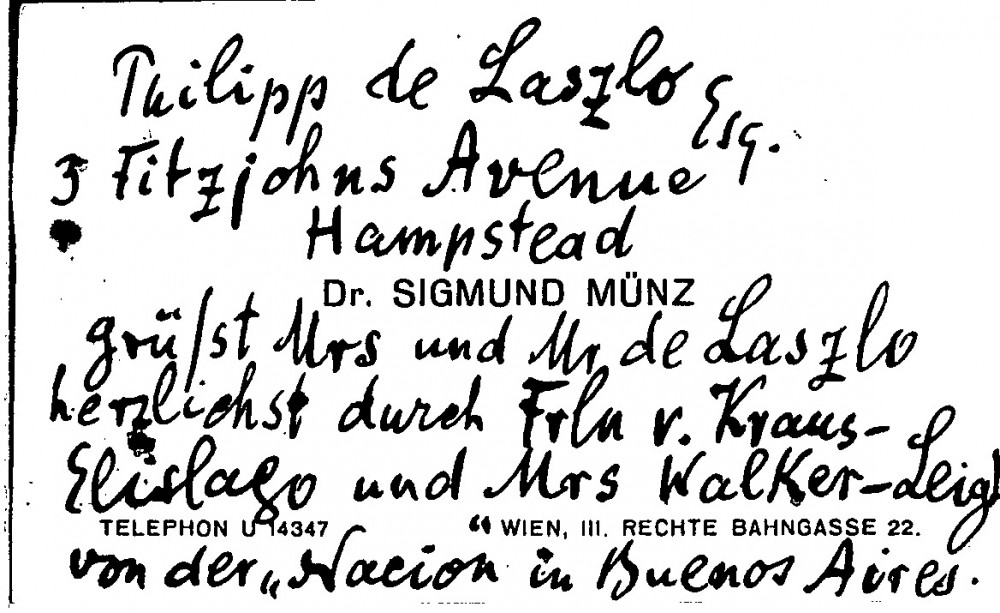 Philipp de Laszlo Esq.
3 Fitzjohns Avenue
Hampstead
Dr. SIGMUND MÜNZ
grüßt Mrs und Mr de Laszlo
herzlichst durch Frln v. Kraus-
Elislago und Mrs Walker-Leigh
TELEPHON U 14347 WIEN, III. RECHTE BAHNGASSE 22.
von der „Nacion“ in Buenos Aires.